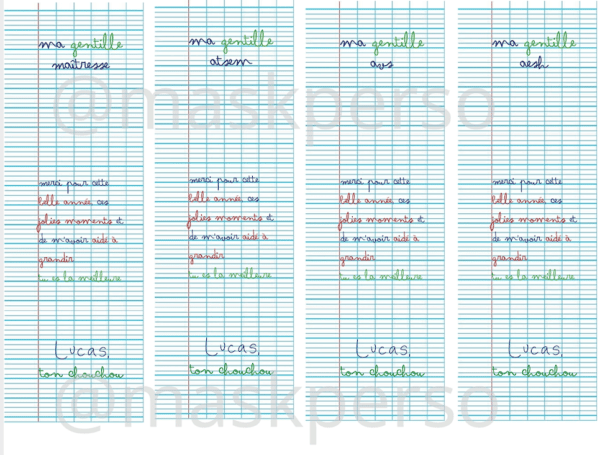 ma gentille
maîtresse
merci pour cette
belle année, ces
jolies moments et
de m'avoir aidé à
grandir
tu es la meilleure
Lucas,
ton chouchou
ma gentille
atsem
merci pour cette
belle année, ces
jolies moments et
de m'avoir aidé à
grandir
tu es la meilleure
Lucas,
ton chouchou
ma gentille
avs
merci pour cette
belle année, ces
jolies moments et
de m'avoir aidé à
grandir
tu es la meilleure
Lucas,
ton chouchou
ma gentille
aesh
merci pour cette
belle année, ces
jolies moments et
de m'avoir aidé à
grandir
tu es la meilleure
Lucas,
ton chouchou
@maskperso
@maskperso